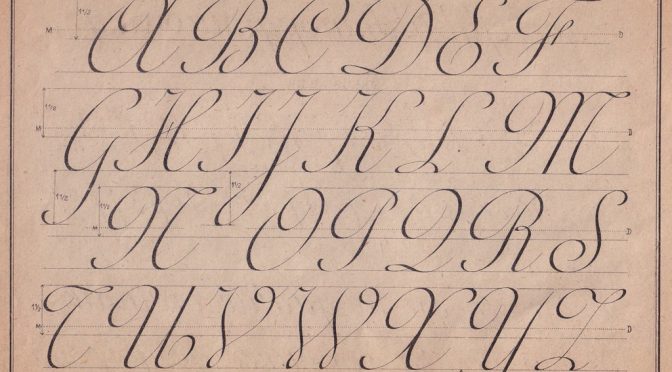 M 1 1/2 A B C D E F D
1 1/2 M G H I J K L M D
1 1/2 1 1/2 M 1 1/2 N O P Q R S D
1 1/2 M T U V W X Y Z D